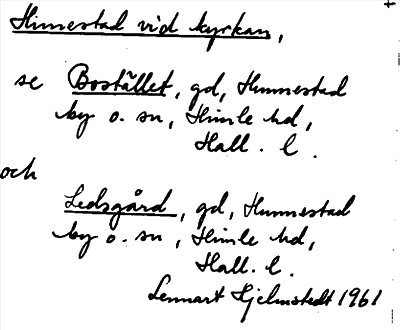 Himnestad vid kyrkan,
se Bostället, gd, Hunnestad
by o. sn, Himle hd,
Hall. l.
och
Ledsgård, gd, Hunnestad
by o. sn, Himle hd,
Hall. l.
Lennart Hjelmstedt 1961